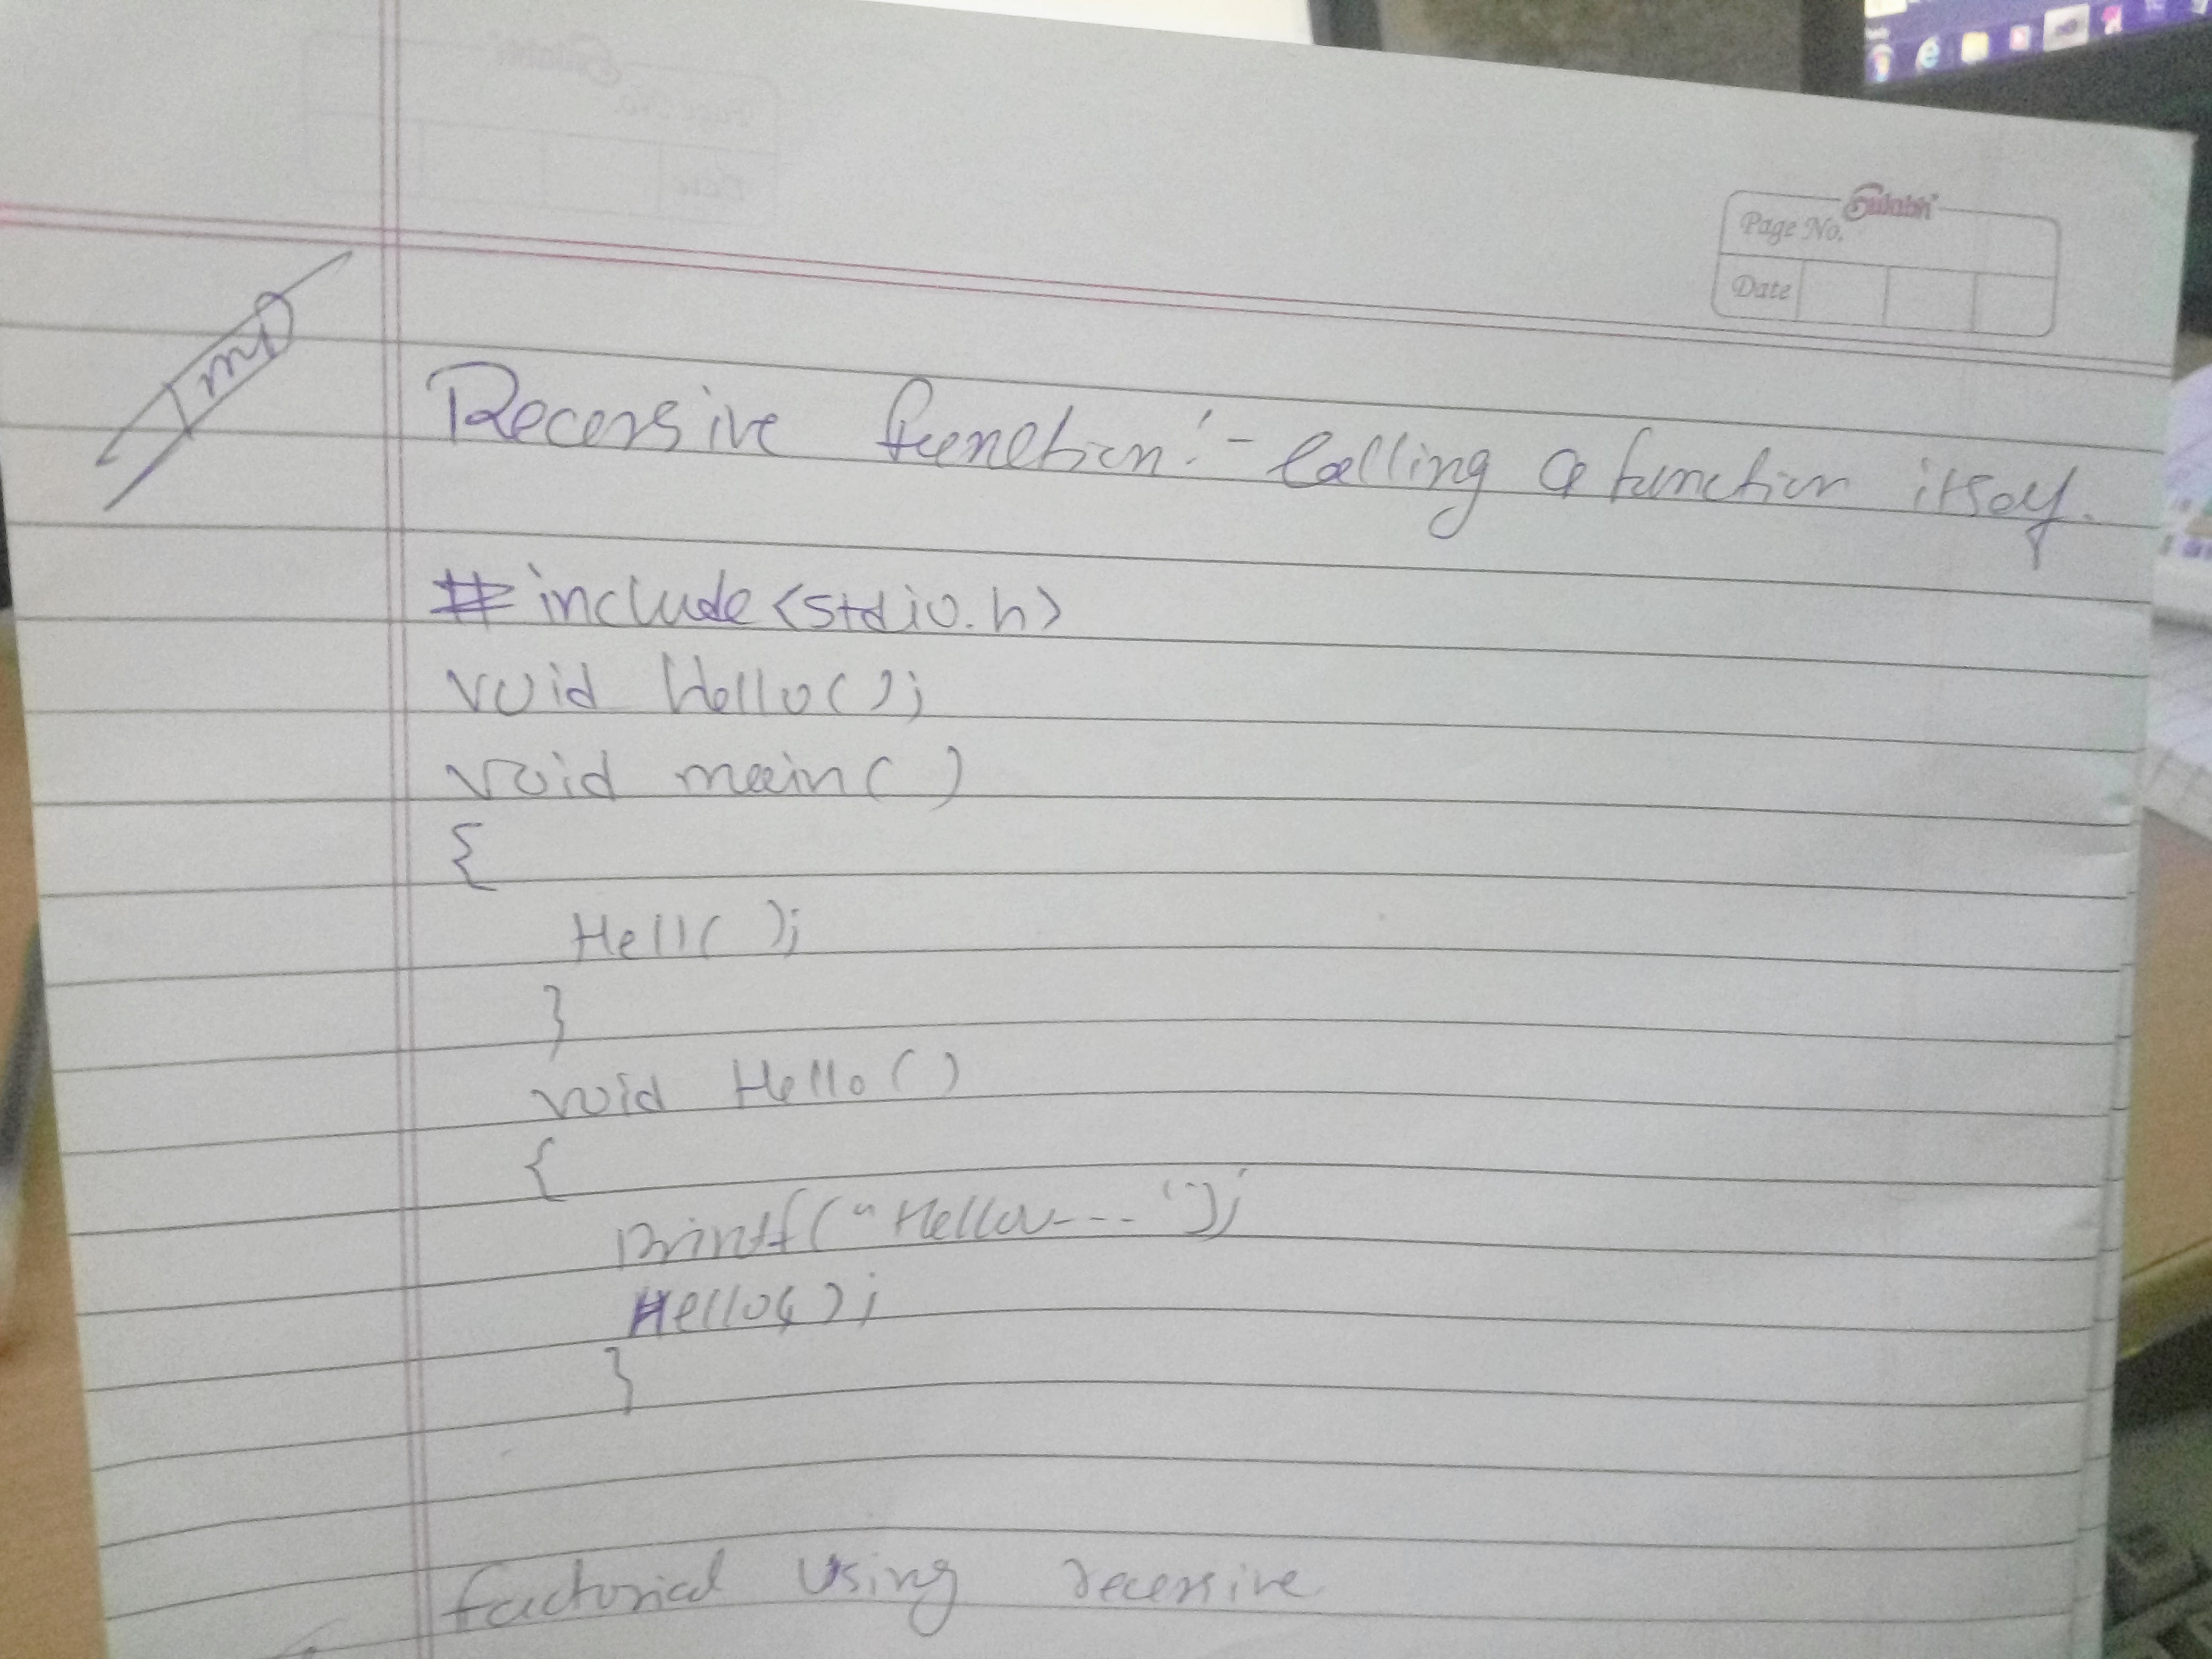 Sulabh
Page No.
Date
Imp
Recersive function:- Calling a function itself.
#include<stdio.h>
void Hello();
void main()
{
Hell();
}
void Hello()
{
printf("Hello---");
Hello();
}
factorial using recersive